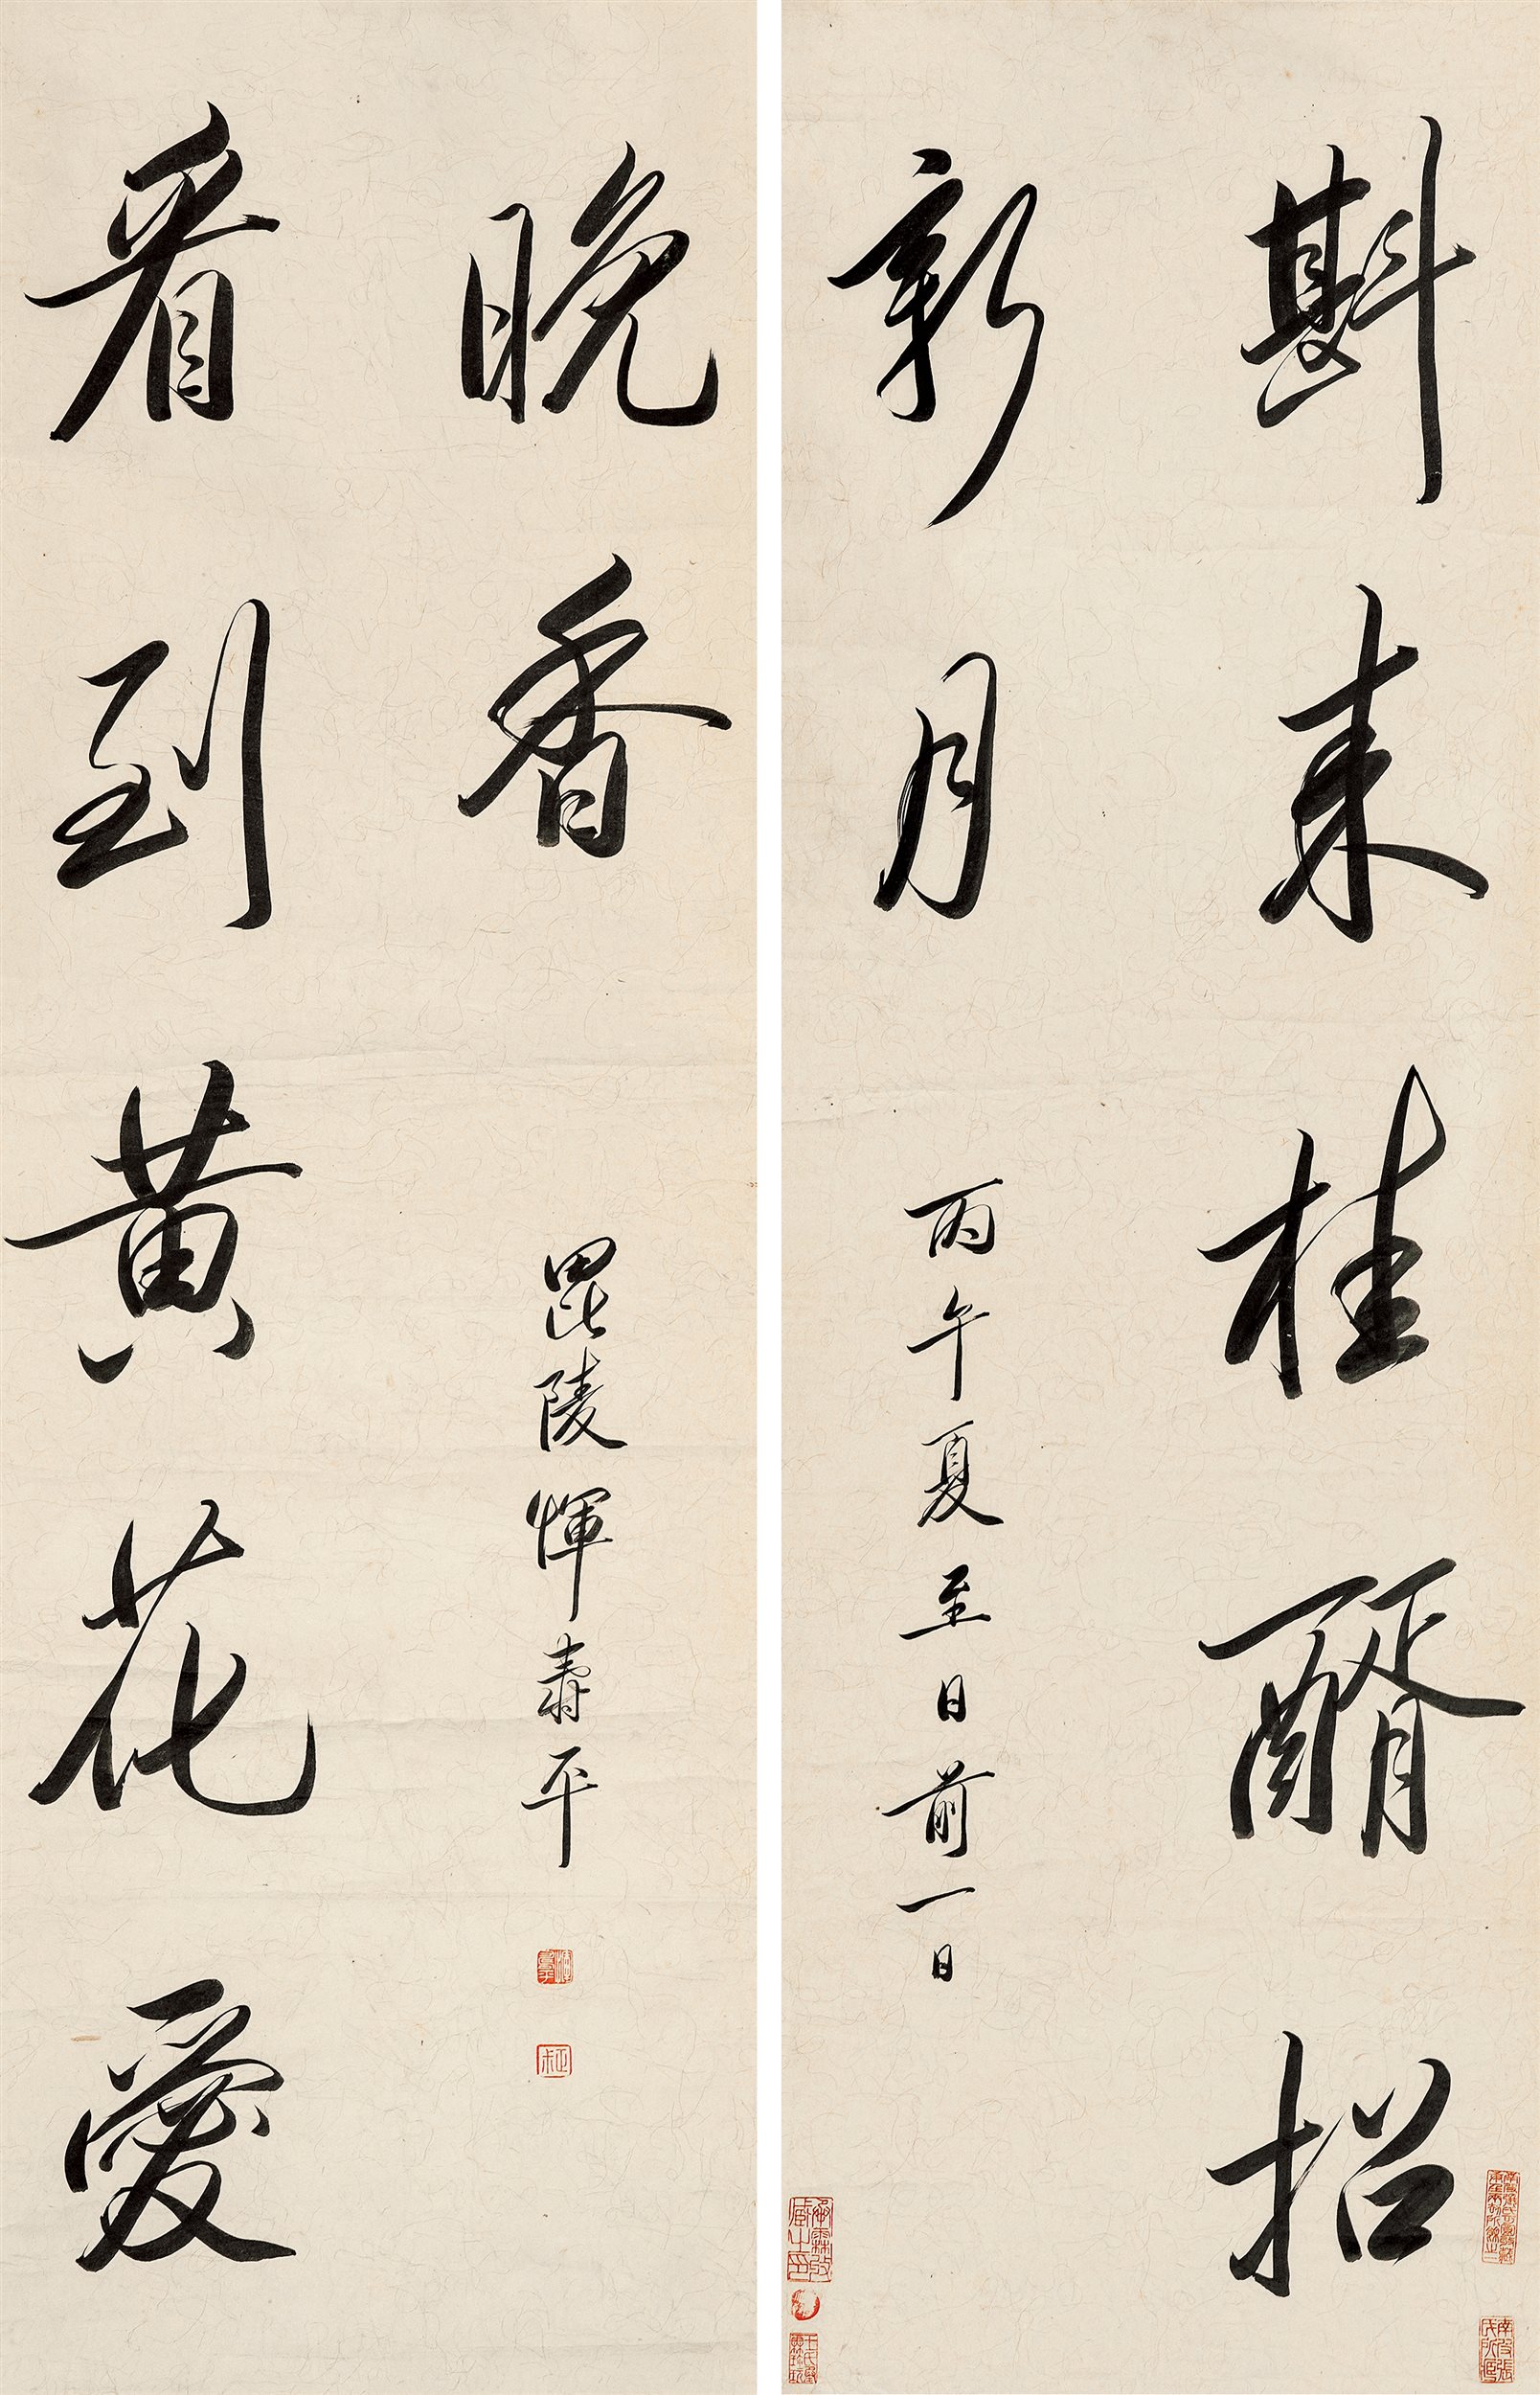 斟来桂醑招
新月
丙午夏至日前一日
看到黄花爱
晚香
毘陵惲壽平